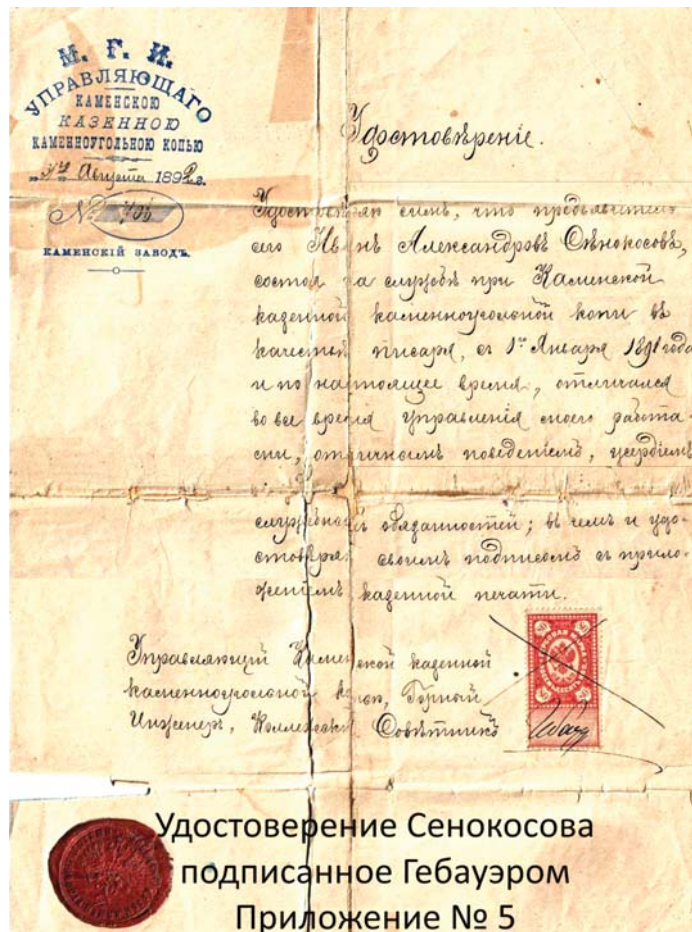 М. Г. И.
УПРАВЛЯЮЩАГО
КАМЕНСКОЮ
КАЗЕННОЮ
КАМЕННОУГОЛЬНОЮ КОПЬЮ
Августа 1892 г.
№
КАМЕНСКІЙ ЗАВОДЪ.
Удостовѣреніе.
Удостовѣряю симъ, что предъявитель
сего Иванъ Александровъ Сѣнокосовъ,
состоя на службѣ при Каменской
казенной каменноугольной копи въ
качествѣ писаря, съ 1го Января 1891 года
и по настоящее время, отличался
во все время управленія моего работа-
ми, отличнымъ поведеніемъ, усердіемъ
служебныхъ обязанностей; въ чемъ и удо-
стовѣряю своимъ подписомъ съ прило-
женіемъ казенной печати.
Управляющій Каменской казенной
каменноугольной копью, Горный
Инженеръ, Коллежскій Совѣтникъ
Удостоверение Сенокосова
подписанное Гебауэром
Приложение № 5